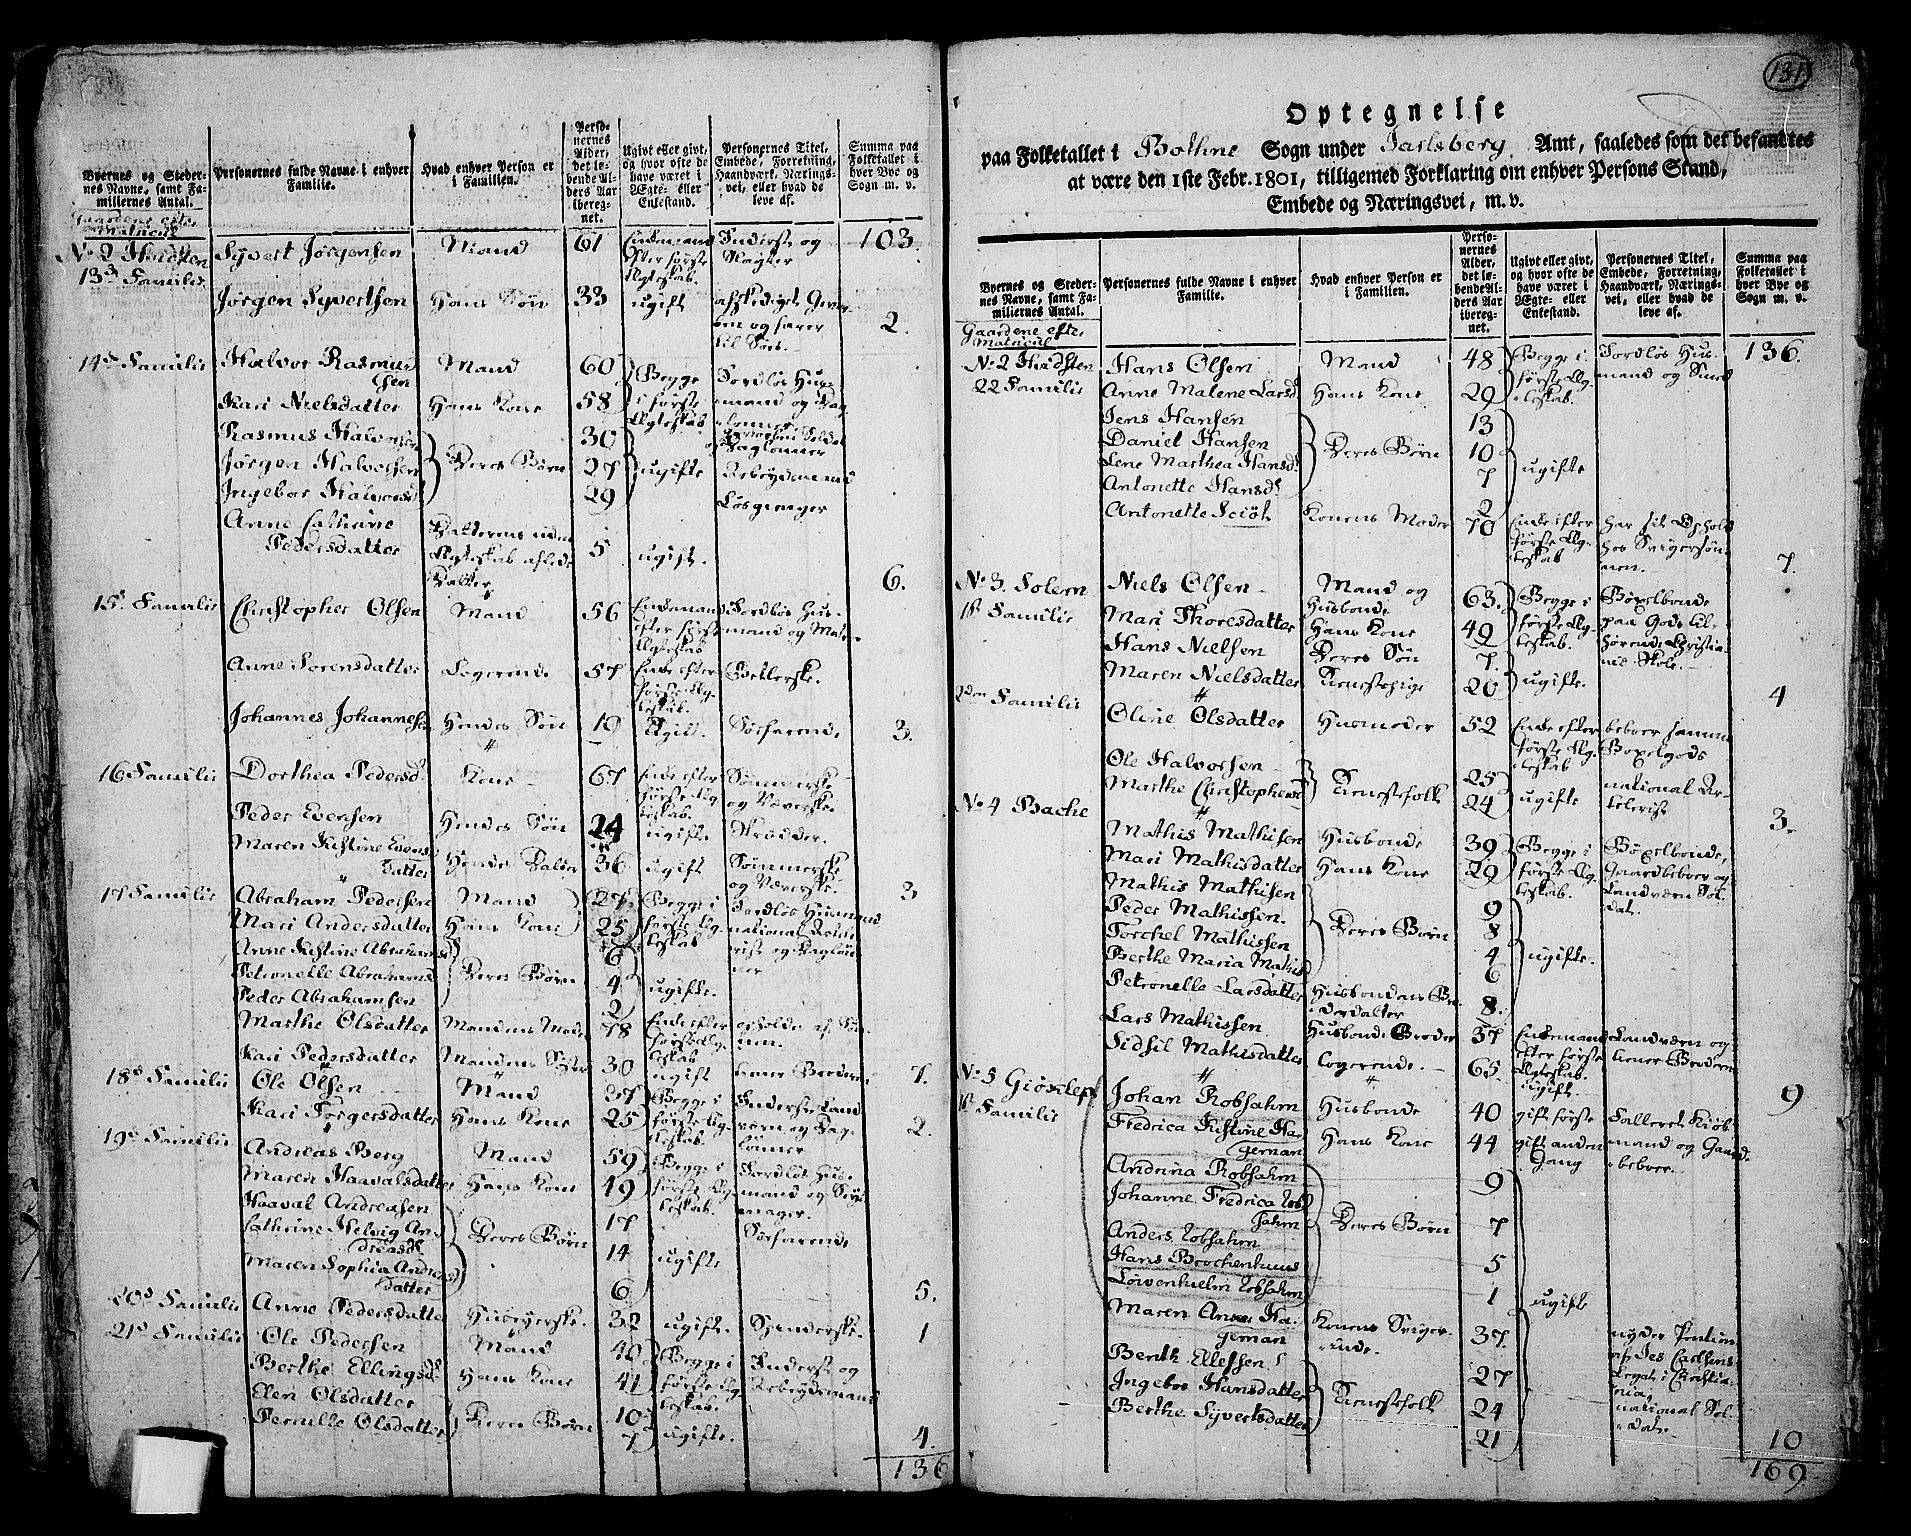 Byernes og Stedernes Navne, samt Familiernes Antal.
Personernes fulde Navne i enhver Familie.
Hvad enhver Person er i Familien.
Personernes Alder, det løbende Alders Aar iberegnet.
Ugivt eller givt, og hvor ofte de have været i Ægte- eller Enkestand.
Personernes Titel, Embede, Forretning, Haandværk, Næringsvei, eller hvad de leve af.
Summa paa Folketallet i hver Bye og Sogn m. v.
Gaardene efter Matricul
No 2 Hvidsten Syvert Jørgensen Mand 61 Enkemand efter første Ægteskab Inderst og 103.
13de Familie
Jørgen Syvertsen Hans Søn 33 ugift 2.
14de Familie Halvor Rasmussen Mand 60 Begge i første Ægteskab Jordløs Husmand og
Kari Nielsdatter Hans Kone 58
Rasmus Halvorsen Deres Børn 30 ugifte
Jørgen Halvorsen 27 Arbeydsmand
Ingebor Halvorsd 29 Løsgienger
Anne Cathrine Pedersdatter Datterens uden Ægteskab aflede Datter 5 ugift. 6.
15de Familie Christopher Olsen Mand 56 Enkemand efter første Ægteskab Jordløs Husmand og
Anne Sørensdatter Logerende 57 Enke efter første Ægteskab Betlerske.
Johannes Johannesen Hendes Søn 19 Ugivt. Søefarende 3.
16 Familie Dorthea Pedersd Kone 67 Enke efter første Ægteskab. Sømmerske og Væverske.
Peder Evensen Hendes Søn 24 ugift Skrædder.
Maren Kistine Evensdatter Hendes Datter 36 ugift Sømmerske og Væverske. 3
17 Familie Abraham Pedersen Mand 27 Begge i første Ægteskab Jordløs Husmand national
Mari Andersdatter Hans Kone 25
Anne Kistine Abrahamsd Deres Børn 6 ugifte.
Petronelle Abrahamsd 4
Peder Abrahamsen 2
Marthe Olsdatter Mandens Moder 78 Enke efter første Ægteskab
Kari Pedersdatter Mandens Søster 30 ugift tiener Broderen 7.
18de Familie Ole Olsen Mand 37 Begge i første Ægteskab. Inderst Landværn og Daglønner
Kari Torgersdatter Hans Kone 25 2.
19de Familie Andreas Berg Mand 59 Begge i første Ægteskab. Jordløs Husmand og
Maren Haavalsdatter Hans Kone 49
Haaval Andreasen Deres Børn 17 ugifte Søefarende
Cathrine Helvig Andreasd 14
Maren Sophia Andreasdatter 6 5.
20de Familie Anne Pedersdatter Huusyerske. 32 ugift. Spinderske. 1
21de Familie Ole Pedersen Mand 40 Begge i første Ægteskab. Inderst og Arbeydsmand
Berthe Ellingsd Hans Kone 41
Elen Olsdatter Deres Børn 10 ugifte.
Pernille Olsdatter 7 4.
136
131
Optegnelse
paa Folketallet i Bothne Sogn under Jarlsberg Amt, saaledes som det befandtes
at være den 1ste Febr. 1801, tilligemed Forklaring om enhver Persons Stand,
Embede og Næringsvei, m. v.
Byernes og Stedernes Navne, samt Familiernes Antal.
Personernes fulde Navne i enhver Familie.
Hvad enhver Person er i Familien.
Personernes Alder, det løbende Alders Aar iberegnet.
Ugivt eller givt, og hvor ofte de have været i Ægte- eller Enkestand.
Personernes Titel, Embede, Forretning, Haandværk, Næringsvei, eller hvad de leve af.
Summa paa Folketallet i hver Bye og Sogn m. v.
Gaardene efter Matricul
No 2 Hvidsten Hans Olsen Mand 48 Begge i første Ægteskab. Jordløs Husmand og Smed 136.
22 Familie Anne Malene Larsd Hans Kone 29
Jens Hansen Deres Børn 13 ugifte
Daniel Hansen 10
Lene Marthea Hansd 7
Antonette Hansd 2
Antonette Sciöt Konens Moder 70 Enke efter første Ægteskab har sit Ophold hos Svigersønnen. 7.
No 3. Solem Niels Olsen Mand og Husbonde 63. Begge i første Ægteskab. Bøxelbonde paa Gods tilhørende Christianis Skole.
1ste Familie Mari Thoresdatter Hans Kone 49
Hans Nielsen Deres Søn 7. ugifte.
Maren Nielsdatter Tienestepige 20 4
2den Familie Oline Olsdatter Husmoder 52 Enke efter første Ægteskab beboer samme Bøxelgods
Ole Halvorsen Tienestefolk 25 ugifte national
Marthe Christophersd 24 3.
No 4 Bache Mathis Mathisen Husbonde 39 Begge i første Ægteskab. Bøxelbonde, Gaardbeboer og Landværn Soldat.
Mari Mathisdatter Hans Kone 29
Mathis Mathisen Deres Børn 9 ugifte.
Peder Mathissen. 8
Torchel Mathissen 4
Berthe Maria Mathisd 6
Petronelle Larsdatter Husbondens Broderdatter 8.
Lars Mathissen Husbonde Broder 37 Enkemand efter første Ægteskab. Landværn og tiener Broderen
Sidsil Mathisdatter Logerende. 65. ugift. 9
No 5 Giøxlep Johan Robsahm Husbonde 40 gift første
1ste Familie Fredrica Kistine Hageman Hans Kone 44 gift anden Gang
Andrina Robsahm Deres Børn 9 ugifte
Johanne Fredrica Robsahm 7
Anders Robsahm 5
Hans Brochenhuus Löwenhielm Robsahm 1
Maren Anna Hageman Konens 37. nyder Pention af
Benth Ellefsen Tienestefolk 27 national Soldat.
Ingebor Hansdatter 24
Berthe Syvertsdatter 21 10
169.